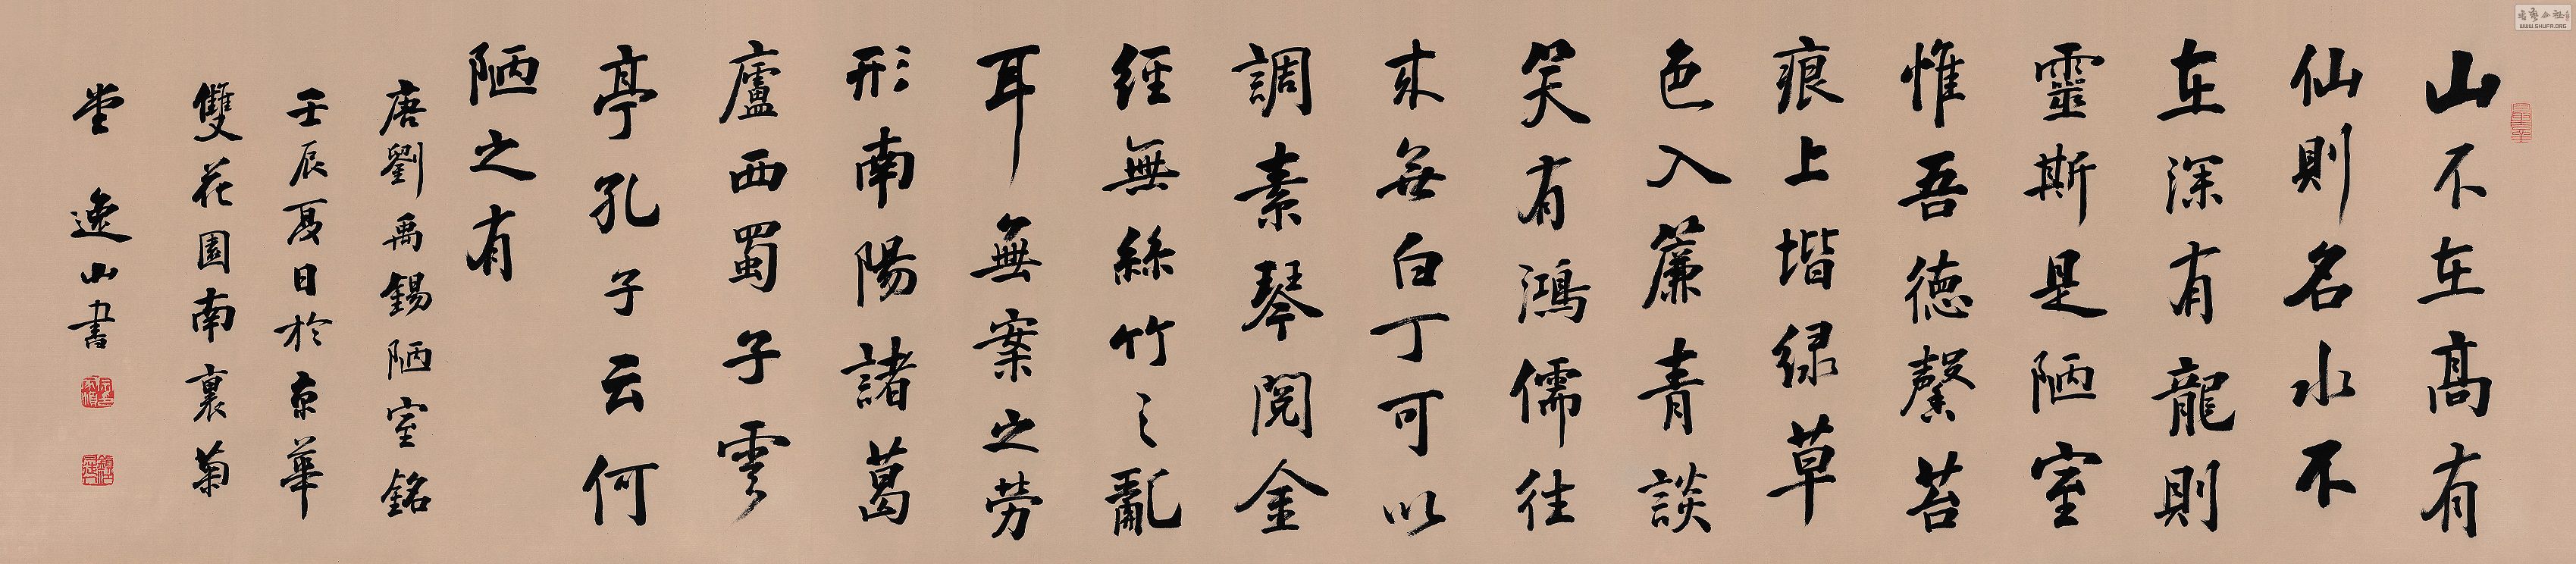 山不在高有
仙則名水不
在深有龍則
靈斯是陋室
惟吾德馨苔
痕上堦緑草
色入簾青談
笑有鴻儒往
来無白丁可以
調素琴閱金
經無絲竹之亂
耳無案之劳
形南陽諸葛
廬西蜀子雲
亭孔子云何
陋之有
唐劉禹錫陋室銘
壬辰夏日於京華
雙花園南裏菊
堂 逸山書
WWW.SHUFA.ORG